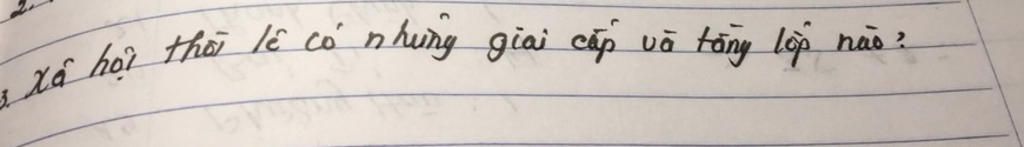 2.
3. Xã hội thời lê có những giai cấp và tầng lớp nào?